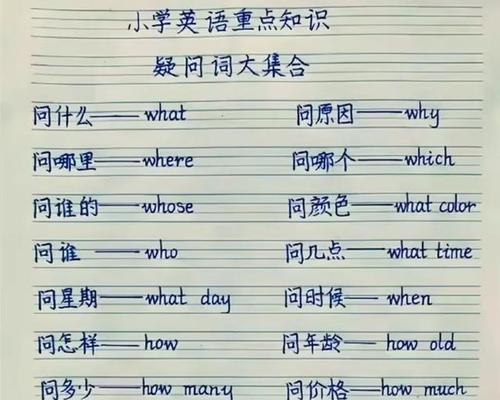 小学英语重点知识
疑问词大集合
问什么——what 问原因——why
问哪里——where 问哪个——which
问谁的——whose 问颜色——what color
问谁——who 问几点——what time
问星期——what day 问时候——when
问怎样——how 问年龄——how old
问多少——how many 问价格——how much